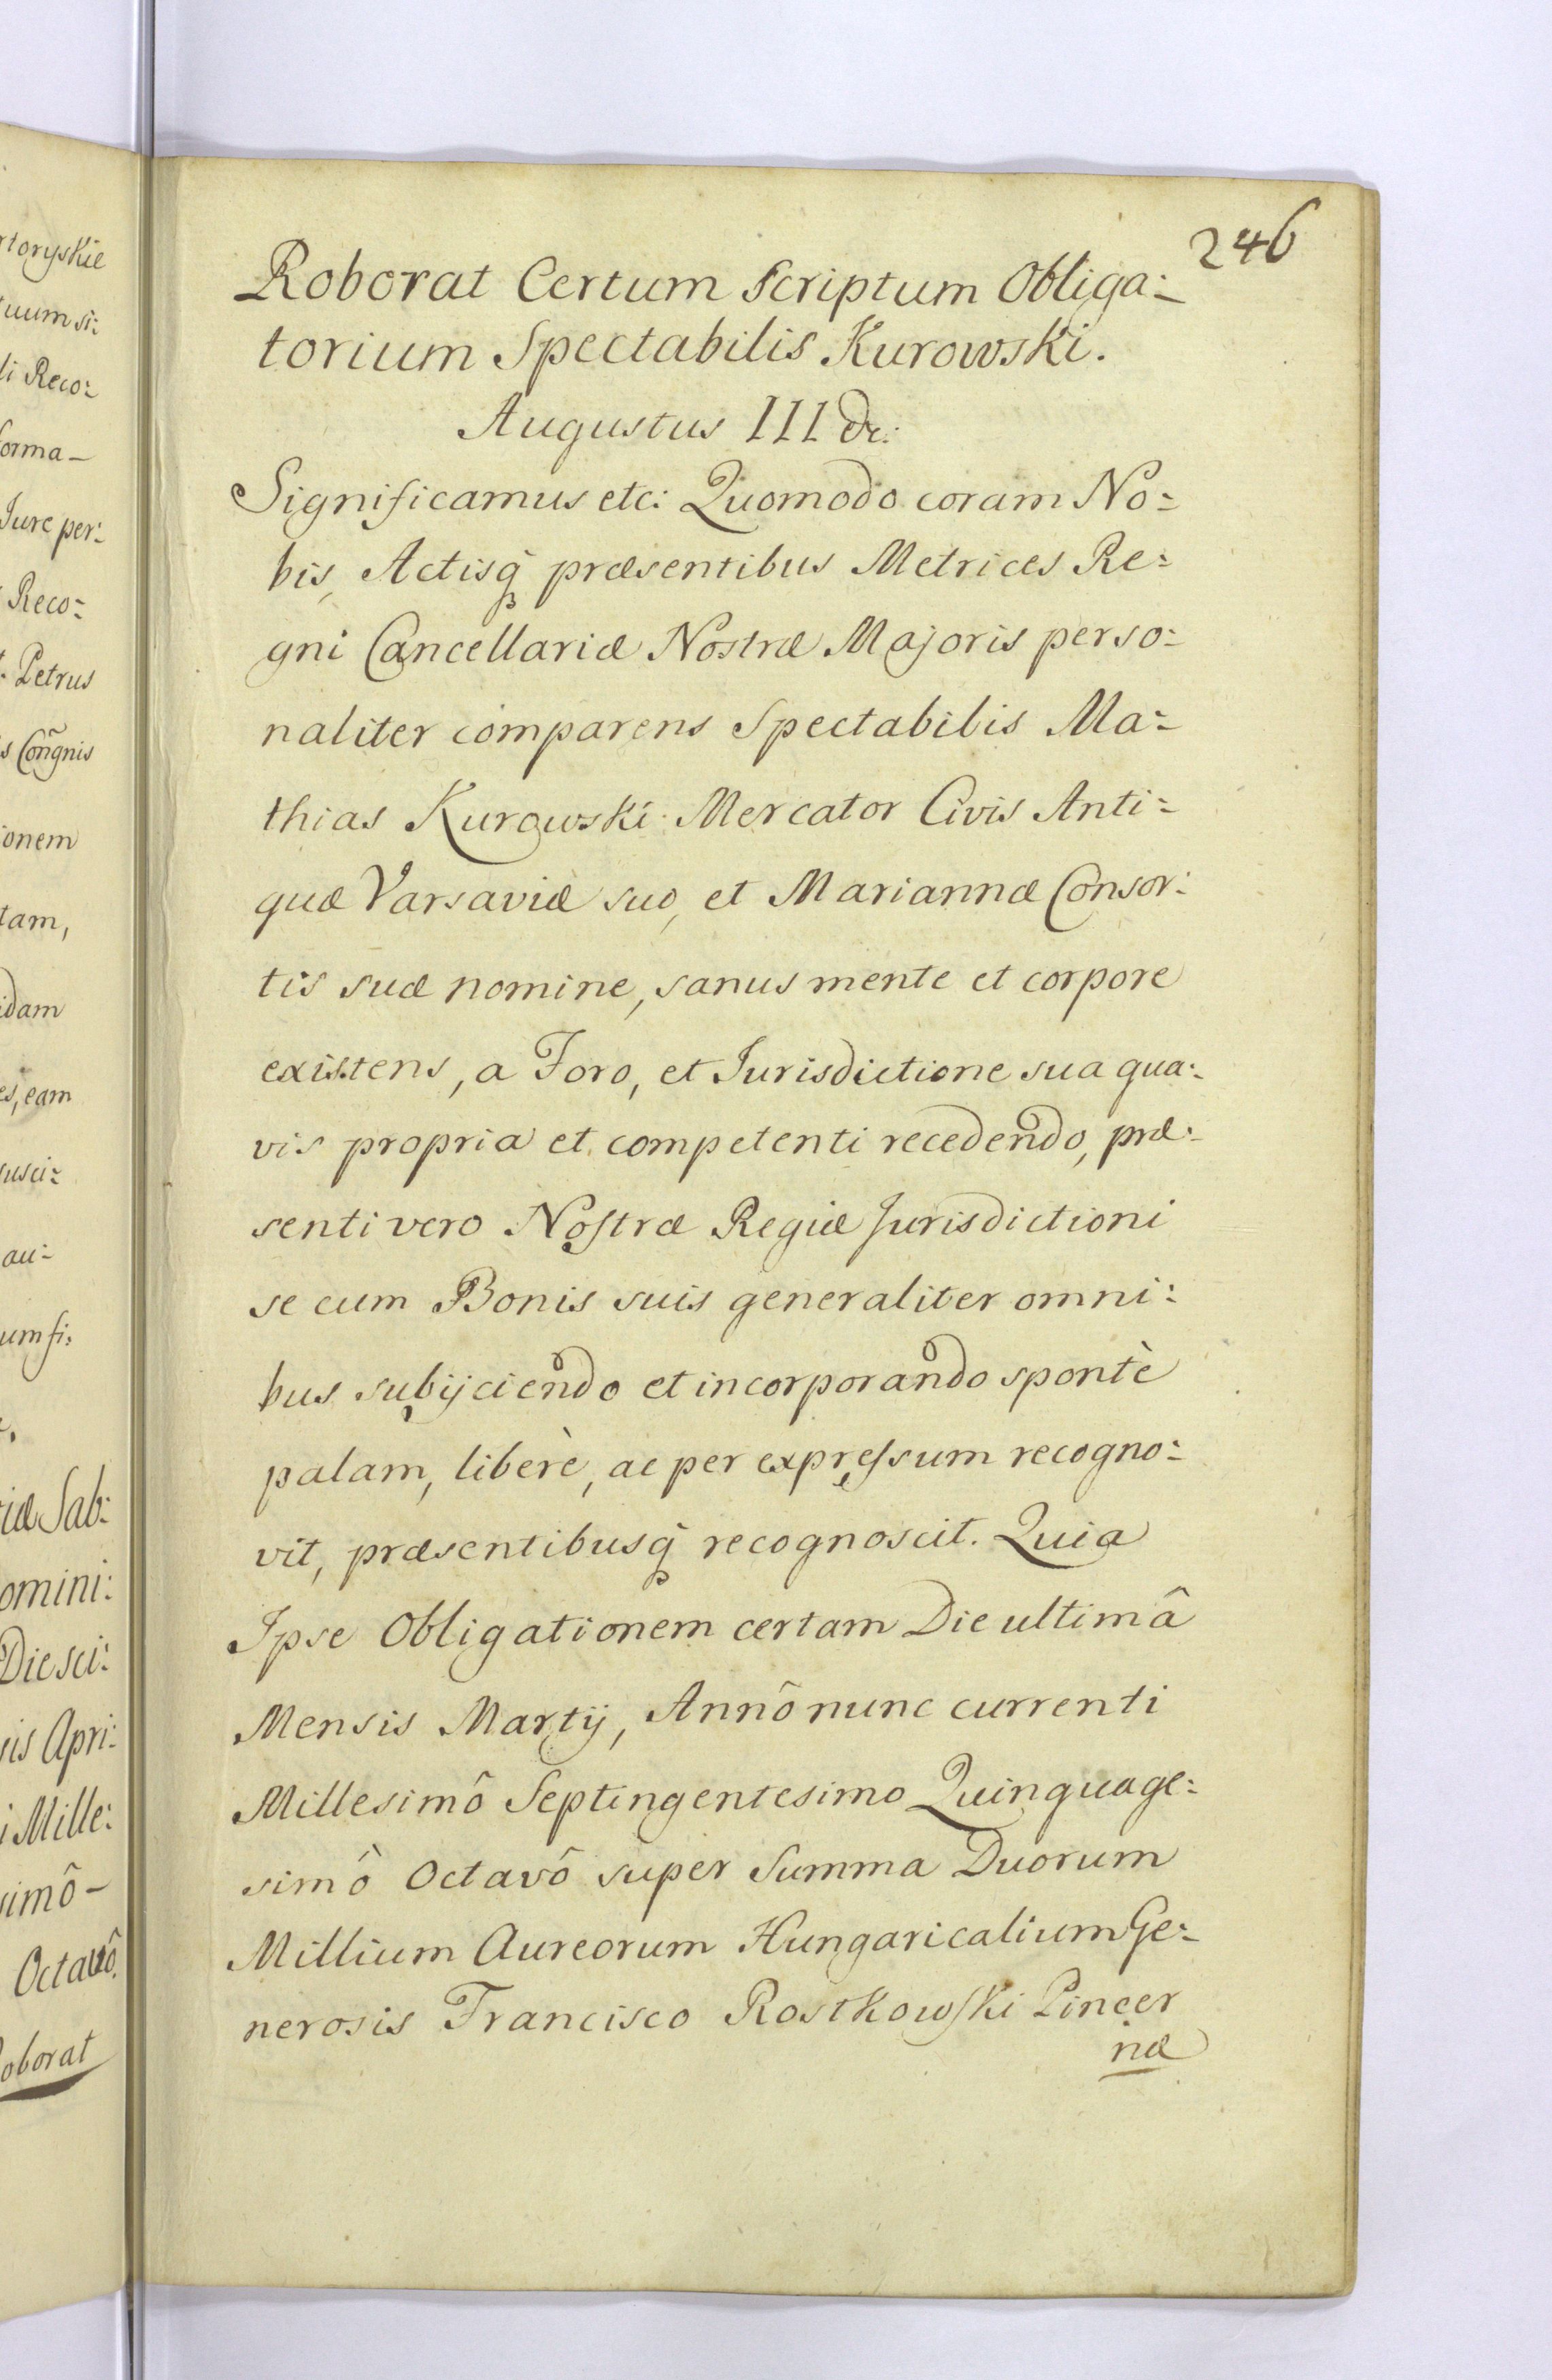 rtoryskie
uum si:
li Reco:
forma-
Jure per:
Reco:
Petrus
s Congnis
ionem
tam,
idam
es, eam
susci:
au:
um si:
riæ Sab:
omini:
Die sci:
sis Apri:
i Mille:
simô-
Octavô.
oborat
246
Roborat Certum Scriptum Obliga:
torium Spectabilis Kurowski.
Augustus III &c:
Significamus etc: Quomodo coram No:
bis, Actisq̃ præsentibus Metrices Re:
gni Cancellariæ Nostræ Majoris perso:
naliter comparens Spectabilis Ma:
thias Kurowski Mercator Civis Anti:
quæ Varsaviæ suo, et Mariannæ Consor:
tis suæ nomine, sanus mente et corpore
existens, a Foro, et Jurisdictione sua qua:
vis propria et competenti recedendo, præ:
senti vero Nostræ Regiæ Jurisdictioni
se cum Bonis suis generaliter omni:
bus subijciendo et incorporando spontè
palam, liberè, ac per expressum recogno:
vit, præsentibusq̃ recognoscit. Quia
Ipse Obligationem certam Die ultimâ
Mensis Martij, Annô nunc currenti
Millesimô Septingentesimo Quinquage:
simô Octavô super Summa Duorum
Millium Aureorum Hungaricalium Ge:
nerosis Francisco Rostkowski Pincer
næ